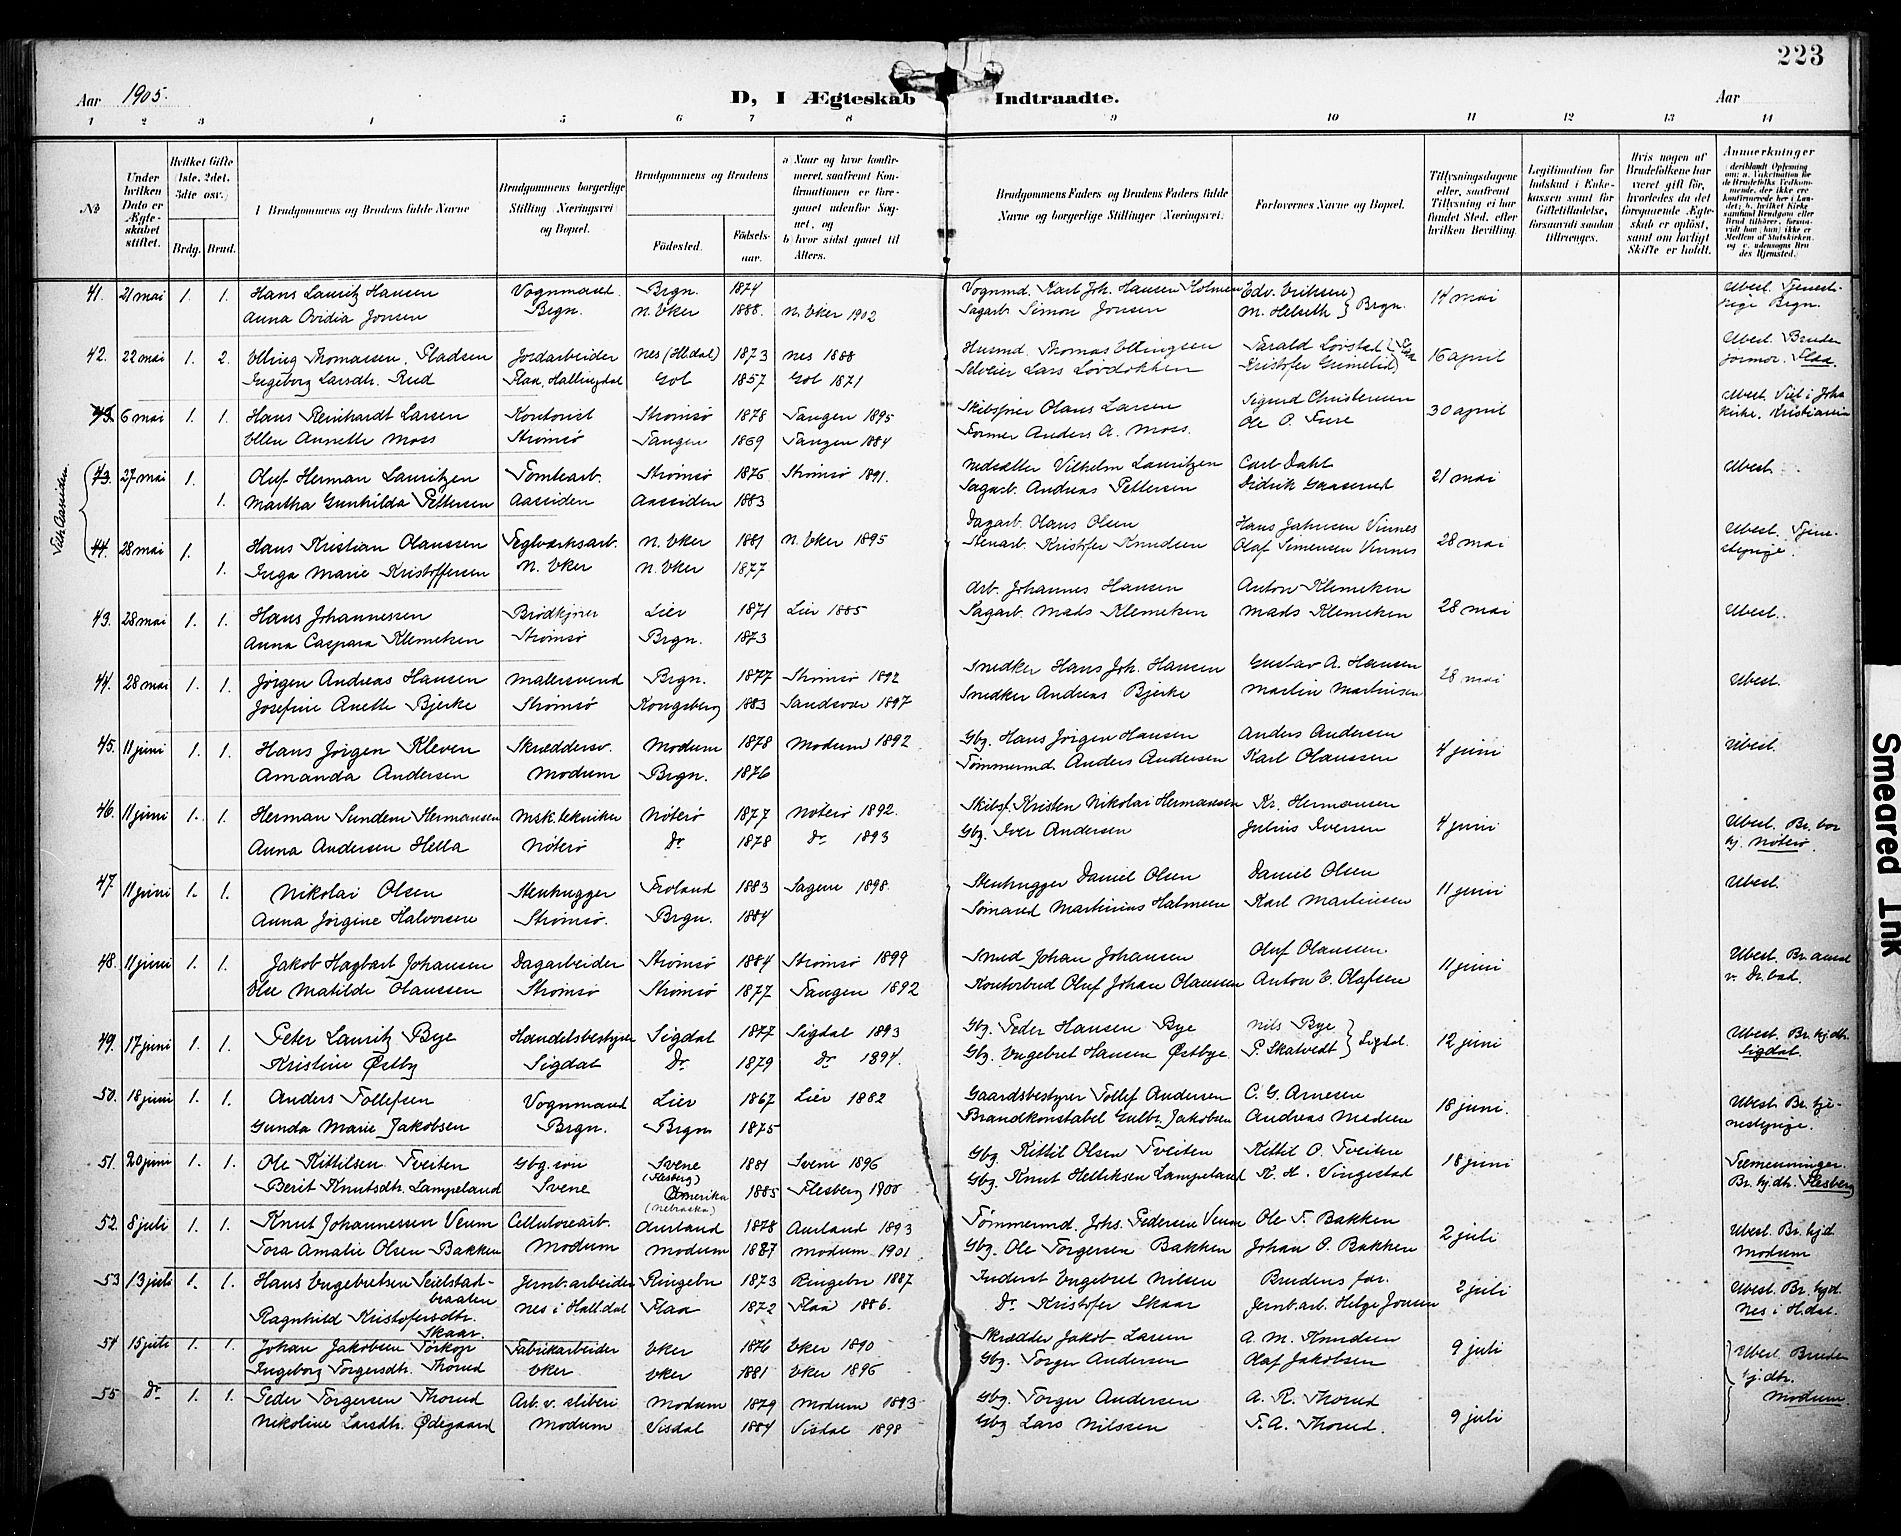 223
Aar 1905.
D, I Ægteskab Indtraadte.
Aar
1 2 3 4 5 6 7 8 9 10 11 12 13 14
№
Under hvilken Dato er Ægteskabet stiftet.
Hvilket Gifte (1ste, 2det, 3die osv.)
Brdg. Brud.
Brudgommens og Brudens fulde Navne
Brudgommens borgerlige Stilling (Næringsvei) og Bopæl.
Brudgommens og Brudens
Fødested. Fødselsaar.
a Naar og hvor konfirmeret, saafremt Konfirmationen er foregaaet udenfor Sognet, og
b hvor sidst gaaet til Alters.
Brudgommens Faders og Brudens Faders fulde Navne og borgerlige Stillinger (Næringsvei).
Forlovernes Navne og Bopæl.
Tillysningsdagene eller, saafremt Tillysning ei har fundet Sted, efter hvilken Bevilling.
Legitimation for Indskud i Enkekassen samt for Giftetilladelse, forsaavidt saadan tiltrænges.
Hvis nogen af Brudefolkene har været gift før, hvorledes da det foregaaende Ægteskab er opløst, samt om lovligt Skifte er holdt.
Anmerkninger
41. 21 mai 1. 1. Hans Lauritz Hansen Vognmand Brgn. 1874 Vognmd. Karl Joh. Hansen Holmen Edv. Eriksen 14 mai Ubest. Tjeneste-
Anna Ovidia Jonsen Brgn. N. Eker 1888. N. Eker 1902 Sagarb. Simon Jonsen M. Helseth Brgn. pige Brgn.
42. 22 mai 1. 2. Elling Thomassen Pladsen Jordarbeider Nes (Halldal) 1873 Nes 1888 Husmd. Thomas Ellingsen Tarald Lövstad 16 april Ubest. Bruden
Ingeborg Larsdtr. Rud Flaa, Hallingdal Gol 1857 Gol 1871 Selveier Lars Lövdokken Kristofer Grimelid Flaa
43. 6 mai 1. 1. Hans Reinhardt Larsen Kontorist Strömsö 1878 Tangen 1895 Skibsfører Olaus Larsen Sigurd Christensen 30 april Ubest. Viet i Johs
Ellen Annette Moss Strömsö Tangen 1869 Tangen 1884 Former Anders A. Moss. Ole O. Fure Kirke, Kristiania
Viet Aassiden
43. 27 mai 1. Oluf Herman Lauritzen Tomtearb. Strömsö 1876 Strömsö 1891. Nedsætter Vilhelm Lauritzen Carl Dahl 21 mai Ubest.
1. Martha Gunhilda Pettersen Aassiden Aassiden 1883 Sagarb. Andreas Pettersen Didrik Gaaserud
44. 28 mai 1. Hans Kristian Olaussen Teglverksarb. N. Eker 1881 N. Eker 1895 Dagarb. Olaus Olsen Hans Jahnsen Vinnes 28 mai Ubest. Tjene-
1. Inga Marie Kristoffersen N. Eker N. Eker 1877 Stenarb. Kristofer Knudsen Olaf Simensen Vinnes stepige.
43. 28 mai 1. 1. Hans Johannessen Brödkjörer Lier 1871 Lier 1885 Arb. Johannes Hansen Anton Klemeken 28 mai Ubest.
Anna Caspara Klemeken Strömsö Brgn. 1873 Sagarb. Mads Klemeken Mads Klemeken
44. 28 mai 1. 1. Jörgen Andreas Hansen Malersvend Brgn. 1877 Strömsö 1892 Snedker Hans Joh. Hansen Gustav A. Hansen 28 mai Ubest.
Josefine Anette Bjerke Strömsö Kongsberg 1883 Sandsvær 1897 Snedker Andreas Bjerke Martin Martinsen
45. 11 juni 1. 1. Hans Jörgen Kleven Skræddersv. Modum 1878 Modum 1892 Gbg. Hans Jörgen Hansen Anders Andersen 4 juni Ubest.
Amanda Andersen Modum Brgn. 1876 Tömmermd. Anders Andersen Karl Olaussen
46. 11 juni 1. 1. Herman Sundene Hermansen Msk.tekniker Nöterö 1877 Nöterö 1892. Skibsf. Kristen Nikolai Hermansen Kr. Hermansen 4 juni Ubest. Br. bor
Anna Andersen Hella Nöterö Do 1878 Do 1893 Gbg. Iver Andersen Julius Iversen hj. Nöterö.
47 11 juni 1. 1. Nikolai Olsen Stenhugger Froland 1883 Sagene 1898. Stenhugger Daniel Olsen Daniel Olsen 11 juni Ubest.
Anna Jörgine Halvorsen Strömsö. Brgn. 1884 Sömand Martinius Halvorsen Karl Martinsen
48. 11 juni 1. 1. Jakob Hagbart Johansen Dagarbeider Strömsö 1884 Strömsö 1899 Smed Johan Johansen Oluf Olaussen 11 juni Ubest. Br. ansat
Else Matilde Olaussen Strömsö Strömsö 1877 Tangen 1892 Kontorbud Oluf Johan Olaussen Anton E. Olafsen
49. 17 juni 1. 1. Peter Lauritz Bye Handelsbestyrer Sigdal 1877 Sigdal 1893 Gbg. Peder Hansen Bye Nils Bye 12 juni Ubest. Br. hj.dtr.
Kristine Østby Sigdal Do 1879 Do 1894. Gbg. Engebret Hansen Østbye. P. Skatvedt Sigdal. Sigdal.
50. 18 juni 1. 1. Anders Tollefsen Vognmand Lier 1867 Lier 1882 Gaardsbestyrer Tollef Andersen C. G. Arnesen 18 juni. Ubest. Br. tje-
Gunda Marie Jakobsen Brgn. Brgn 1875 Brandkonstabel Gulbr. Jakobsen Andreas Madsen nestepige.
51. 20 juni 1. 1. Ole Kittilsen Tveiten Gbg.sön Svene (Flesberg) 1881 Svene 1896 Gbg. Kittil Olsen Tveiten Kittil O. Tveiten 18 juni Tremenninger.
Berit Knutsdtr. Lampeland Svene Amerika (Nebraska) 1885 Flesberg 1900 Gbg. Knut Helliksen Lampeland K. H. Vingestad Br. hj.dtr. Flesberg
52. 8 juli 1. 1. Knut Johannessen Veum Cellulosearb. Aurland 1878 Aurland 1893 Tömmermd. Johs. Pedersen Veum Ole T. Bakken 2 juli Ubest. Br. hj.d.
Tora Amalie Olsen Bakken Modum Modum 1887 Modum 1901 Gbg. Ole Torgersen Bakken Johan O. Bakken Modum
53 13 juli 1. 1. Hans Engebretsen Seielstadbraaten Jernb.arbeider Ringebu 1873 Ringebu 1887 Inderst Engebret Nilsen Brudens far. 2 juli Ubest. Br. hj.d.
Ragnhild Kristofersdtr. Skaar. Nes i Hall.dal Flaa 1872 Flaa 1886. Do Kristofer Skaar Jernb.arb. Helge Jonsen Nes i H.dal.
54 15 juli 1. 1. Johan Jakobsen Torkop Fabrikarbeider Eker 1876 Eker 1890 Skrædder Jakob Larsen A. M. Knudsen 9 juli Ubest. Bruden
Ingeborg Torgersdtr. Thorud Eker. Eker 1881 Eker 1896 Gbg. Torger Andersen Olaf Jakobsen hj.dtr.
55 Do 1. 1. Peder Torgersen Thorud Arb. v. sliberi Modum 1879 Modum 1893 Gbg. Torger Andersen A. R. Thorud 9 juli Modum.
Nikoline Larsdtr. Ødegaard Modum Visdal 1884 Visdal 1898 Gbg Lars Nilssen T. A. Thorud.
Smeared Ink